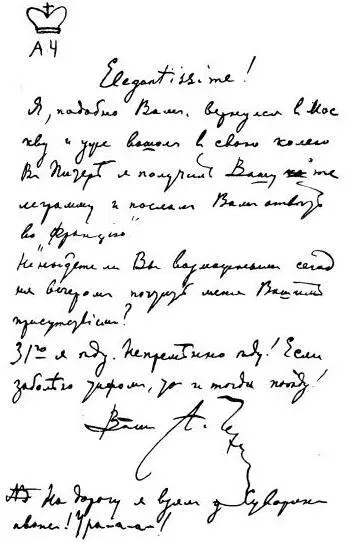 А 4
Elegantissime!
Я, подобно Вамъ, вернулся в Мос
кву и уже вошелъ в свою колею
Въ Питерѣ я получилъ Вашу те
леграмму и послалъ Вамъ отвѣтъ
во "Францію"
Не найдете ли Вы возможнымъ сегод
ня вечеромъ почтить меня Вашимъ
присутствіемъ?
31го я ѣду. Непремѣнно ѣду! Если
заболѣю тифомъ, то и тогда поѣду!
Вашъ А. Чехов
NB На дорогу я взялъ у Суворина
авансъ! Ура-а-а-а!